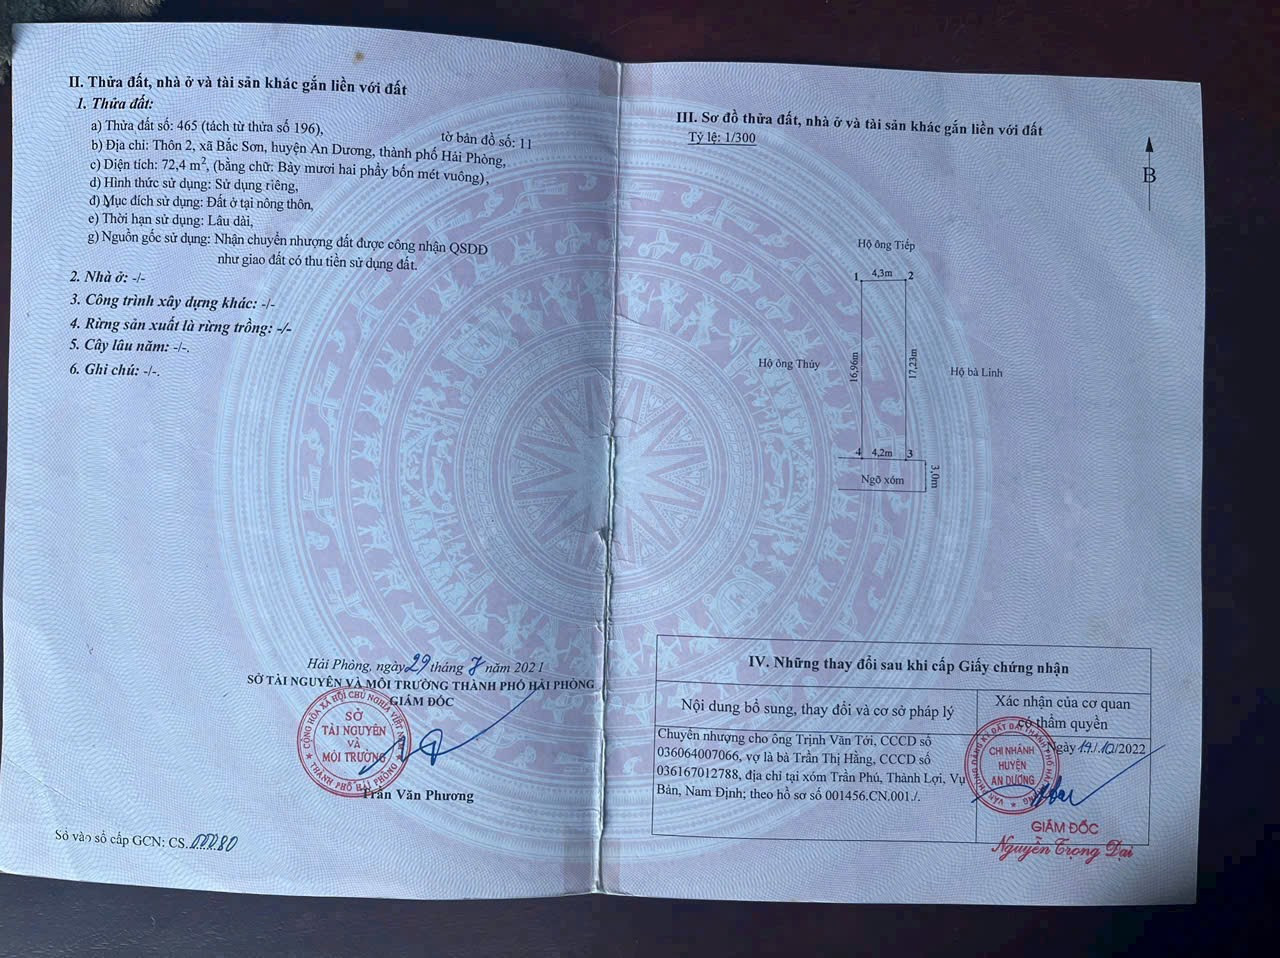 II. Thửa đất, nhà ở và tài sản khác gắn liền với đất
1. Thửa đất:
a) Thửa đất số: 465 (tách từ thửa số 196), tờ bản đồ số: 11
b) Địa chỉ: Thôn 2, xã Bắc Sơn, huyện An Dương, thành phố Hải Phòng,
c) Diện tích: 72,4 m², (bằng chữ: Bảy mươi hai phẩy bốn mét vuông),
d) Hình thức sử dụng: Sử dụng riêng,
đ) Mục đích sử dụng: Đất ở tại nông thôn,
e) Thời hạn sử dụng: Lâu dài,
g) Nguồn gốc sử dụng: Nhận chuyển nhượng đất được công nhận QSDĐ
như giao đất có thu tiền sử dụng đất.
2. Nhà ở: -/-
3. Công trình xây dựng khác: -/-
4. Rừng sản xuất là rừng trồng: -/-
5. Cây lâu năm: -/-.
6. Ghi chú: -/-.
Hải Phòng, ngày 29 tháng 7 năm 2021
SỞ TÀI NGUYÊN VÀ MÔI TRƯỜNG THÀNH PHỐ HẢI PHÒNG
GIÁM ĐỐC
CỘNG HÒA XÃ HỘI CHỦ NGHĨA VIỆT NAM
SỞ
TÀI NGUYÊN
VÀ
MÔI TRƯỜNG
THÀNH PHỐ HẢI PHÒNG
Trần Văn Phương
Số vào sổ cấp GCN: CS.
III. Sơ đồ thửa đất, nhà ở và tài sản khác gắn liền với đất
Tỷ lệ: 1/300
B
Hộ ông Tiếp
1 4,3m 2
Hộ ông Thủy
16,96m
17,23m
Hộ bà Linh
4 4,2m 3
Ngõ xóm
3,0m
IV. Những thay đổi sau khi cấp Giấy chứng nhận
Nội dung bổ sung, thay đổi và cơ sở pháp lý
Xác nhận của cơ quan
có thẩm quyền
Chuyển nhượng cho ông Trịnh Văn Tới, CCCD số
036064007066, vợ là bà Trần Thị Hằng, CCCD số
036167012788, địa chỉ tại xóm Trần Phú, Thành Lợi, Vụ
Bản, Nam Định; theo hồ sơ số 001456.CN.001./.
Ngày 14/10/2022
VĂN PHÒNG ĐĂNG KÝ ĐẤT ĐAI THÀNH PHỐ HẢI PHÒNG
CHI NHÁNH
HUYỆN
AN DƯƠNG
GIÁM ĐỐC
Nguyễn Trọng Đại